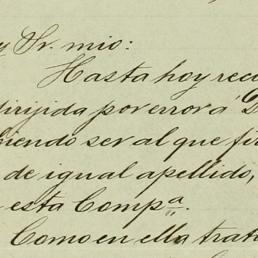 y Sr. mio:
Hasta hoy reci
dirijida por error a "D
niendo ser al que fir
de igual apellido,
esta Compª.
Como en ella trat